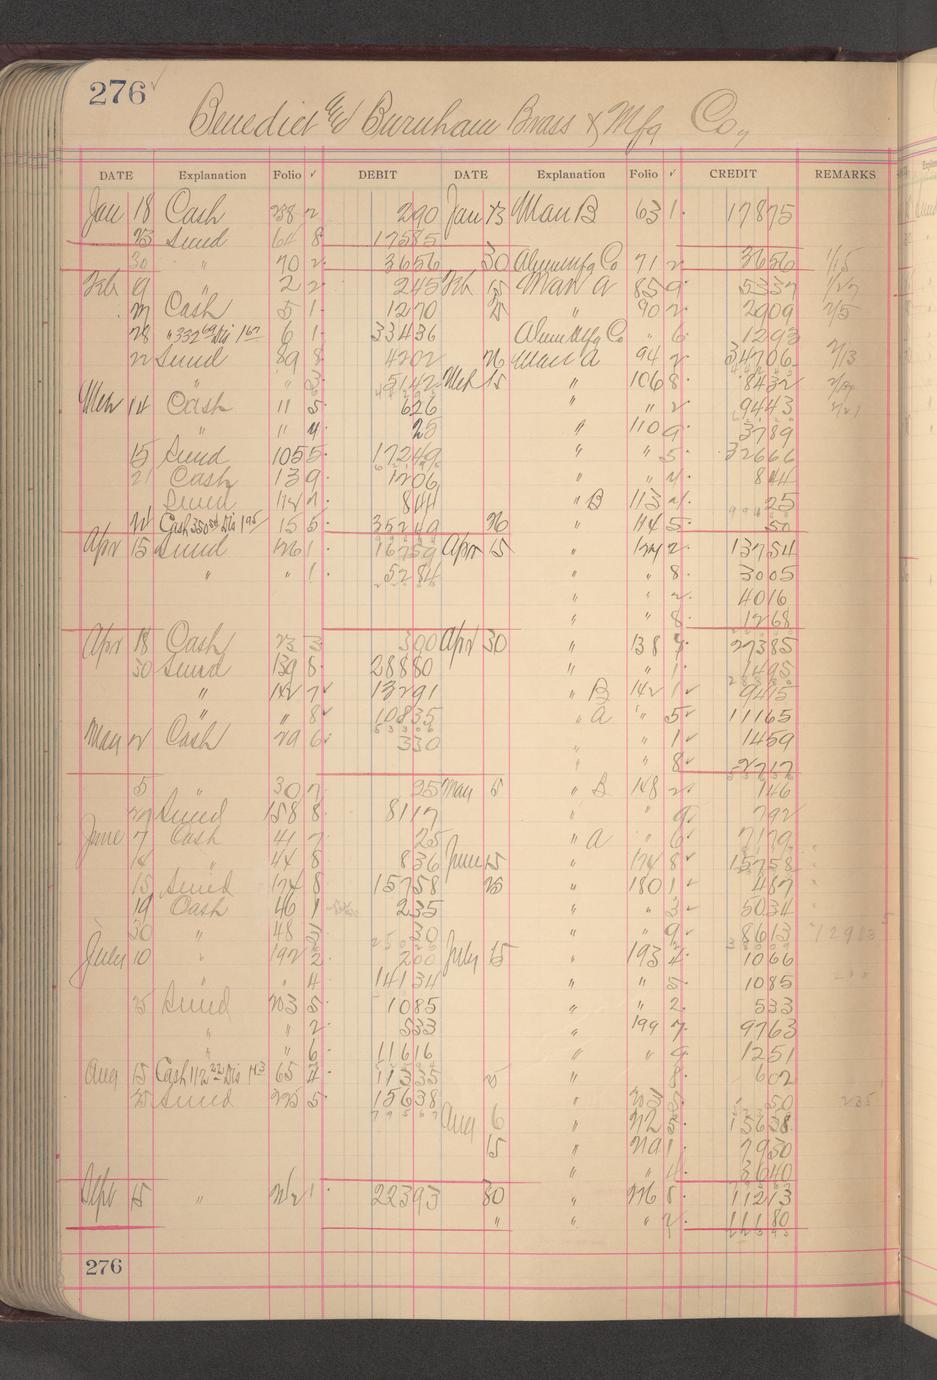 276
Benedict and Burnham Brass & Mfg Co,
DATE Explanation Folio ✓ DEBIT DATE Explanation Folio ✓ CREDIT REMARKS
Jan 18 Cash 288 2 290 Jan 23 Man B 63 1 17875
23 Sund 64 8 17585
30 " 70 2 3656 30 Alum Mfg Co 71 2 3656 1/15
Feb 9 " 2 2 245 Feb 15 Man A 85 9 5337 1/27
Cash 5 1 1270 " 90 2 2909 2/5
28 " 332 69 Dis 1 67 6 1 33436 Alum Mfg Co " 6 1293
Sund 89 8 4202 26 Man A 94 2 34706 2/13
" " 3 5142 Mch 15 " 106 8 8432
Mch 14 Cash 11 5 626 " " 2 9443
" 11 4 25 " 110 9 3789
15 Sund 105 5 17249 " " 5 32666
21 Cash 13 9 1206 " " 844
Sund 844 " B 113 25
Cash 350 54 Dis 1 95 15 5 35249 26 " 114 5 50
Apr 15 Sund 126 1 16759 Apr 15 " 124 2 13754
" " 1 5284 " " 8 3005
" " 2 4016
" " 8 1268
Apr 18 Cash 23 3 300 Apr 30 " 138 27385
30 Sund 139 8 28880 " " 1 1495
" 142 7 13291 " B 142 1 9415
" " 8 10835 " A " 5 11165
May 2 Cash 29 6 330 " " 1 1459
" " 8 2717
5 " 30 7 95 May 5 " B 148 2 146
27 Sund 158 8 8117 " " 9 792
June 7 Cash 41 7 25 " A " 6 7179
" 44 8 836 June 15 " 174 8 15758
15 Sund 174 8 15758 25 " 180 1 487
19 Cash 46 1 235 " " 3 5034
30 " 48 3 30 " " 9 8613 12913
July 10 " 192 2 200 July 15 " 193 4 1066
" " 4 14134 " " 5 1085
25 Sund 203 5 1085 " " 2 533
" " 2 533 " 199 7 9763
" " 6 11616 " " 9 1251
Aug 15 Cash 112 22 Dis 1 13 65 11335 " " 8 602
25 Sund 225 5 15638 " 203 5 50 235
Aug 6 " 212 5 15638
15 " 1 7930
" " 4 3640
Sept 15 " 1 22393 30 " 226 8 11213
" " " 2 11180
276